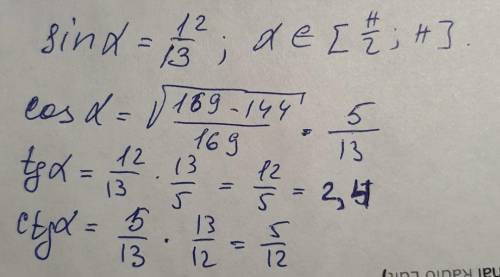 sinα = 12/13 ; α ∈ [π/2 ; π].
cos α = √(169 - 144 / 169) = 5/13
tgα = 12/13 · 13/5 = 12/5 = 2,4
ctgα = 5/13 · 13/12 = 5/12